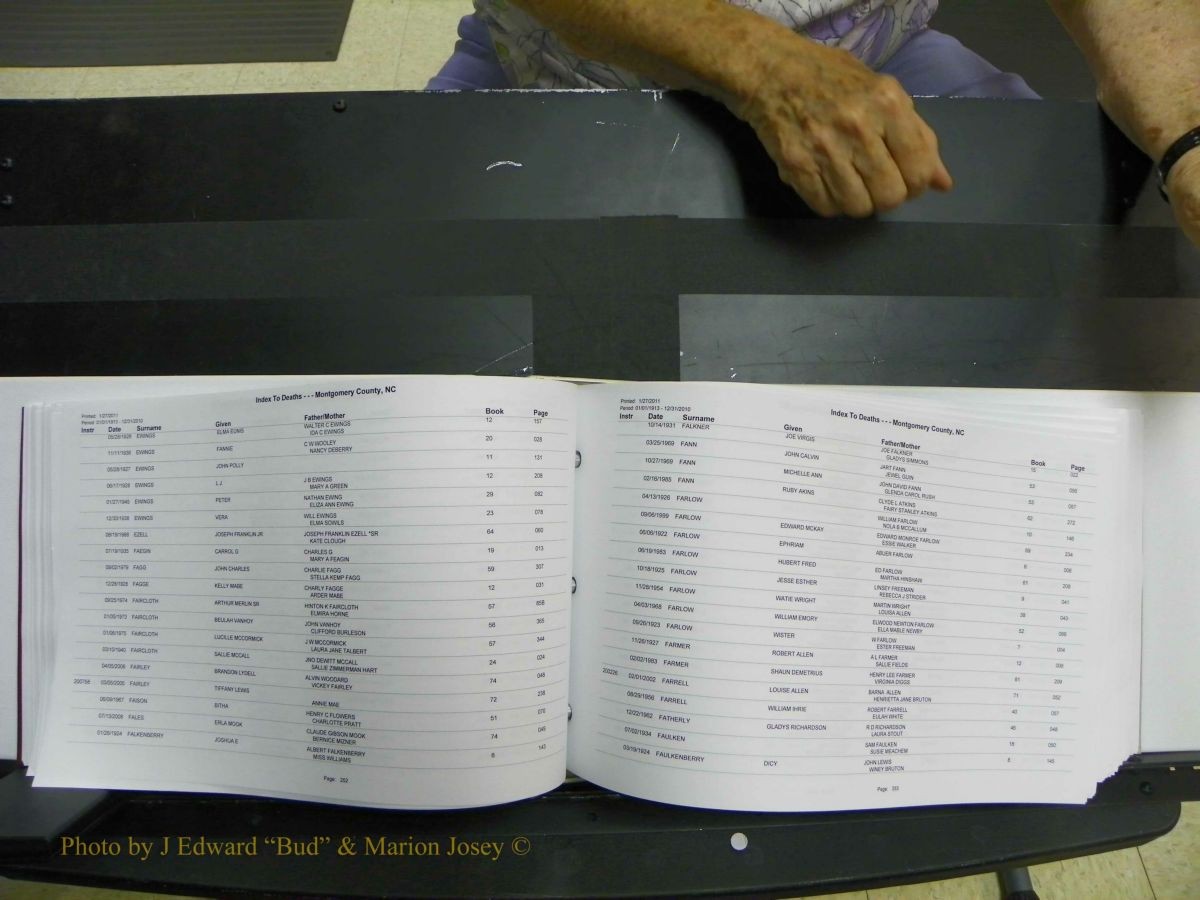 Index To Deaths - - - Montgomery County, NC
Printed: 1/27/2011
Period: 01/01/1913 - 12/31/2010
Instr Date Surname Given Father/Mother Book Page
05/28/1928 EWINGS ELMA EUNIS WALTER C EWINGS 12 157
IDA C EWINGS
11/11/1936 EWINGS FANNIE C W WOOLEY 20 028
NANCY DEBERRY
05/28/1927 EWINGS JOHN POLLY 11 131
06/17/1928 EWINGS L J J B EWINGS 12 208
MARY A GREEN
01/27/1945 EWINGS PETER NATHAN EWING 29 082
ELIZA ANN EWING
12/23/1939 EWINGS VERA WILL EWINGS 23 078
ELMA SOWILS
JOSEPH FRANKLIN JR JOSEPH FRANKLIN EZELL *SR 64 060
EZELL KATE CLOUGH
07/19/1935 FAEGIN CARROL G CHARLES G 19 013
MARY A FEAGIN
09/02/1979 FAGG JOHN CHARLES CHARLIE FAGG 59 307
STELLA KEMP FAGG
12/28/1928 FAGGE KELLY MABE CHARLY FAGGE 12 031
ARDER MABE
09/25/1974 FAIRCLOTH ARTHUR MERLIN SR HINTON K FAIRCLOTH 57 65B
ELMIRA HORNE
01/05/1973 FAIRCLOTH BEULAH VANHOY JOHN VANHOY 56 365
CLIFFORD BURLESON
01/06/1975 FAIRCLOTH LUCILLE MCCORMICK J W MCCORMICK 57 344
LAURA JANE TALBERT
03/10/1940 FAIRCLOTH SALLIE MCCALL JNO DEWITT MCCALL 24 024
SALLIE ZIMMERMAN HART
04/05/2006 FAIRLEY BRANDON LYDELL ALVIN WOODARD 74 048
VICKEY FAIRLEY
200758 03/05/2005 FAIRLEY TIFFANY LEWIS ANNIE MAE 72 238
06/09/1967 FAISON BITHA HENRY C FLOWERS 51 070
CHARLOTTE PRATT
07/13/2006 FALES ERLA MOOK CLAUDE GIBSON MOOK 74 045
BERNICE MIZNER
01/26/1924 FALKENBERRY JOSHUA E ALBERT FALKENBERRY 8 143
MISS WILLIAMS
Page: 252
Printed: 1/27/2011
Period: 01/01/1913 - 12/31/2010
Index To Deaths - - - Montgomery County, NC
Instr Date Surname Given Father/Mother Book Page
10/14/1931 FALKNER JOE VIRGIS JOE FALKNER 15 022
GLADYS SIMMONS
03/25/1969 FANN JOHN CALVIN JART FANN 53
JEWEL GUIN
10/27/1969 FANN MICHELLE ANN JOHN DAVID FANN 53 087
GLENDA CAROL RUSH
02/16/1985 FANN RUBY AKINS CLYDE L ATKINS 62 272
FAIRY STANLEY ATKINS
04/13/1926 FARLOW WILLIAM FARLOW 10 146
NOLA B MCCALLUM
09/06/1999 FARLOW EDWARD MCKAY EDWARD MONROE FARLOW 69 234
ESSIE WALKER
06/06/1922 FARLOW EPHRIAM ABIJER FARLOW 6 006
06/19/1983 FARLOW HUBERT FRED ED FARLOW 61 208
MARTHA HINSHAW
10/18/1925 FARLOW JESSE ESTHER LINSEY FREEMAN 9 041
REBECCA J STRIDER
11/28/1954 FARLOW WATIE WRIGHT MARTIN WRIGHT 38 043
LOUISA ALLEN
04/03/1968 FARLOW WILLIAM EMORY ELWOOD NEWTON FARLOW 52
ELLA MABLE NEWBY
09/26/1923 FARLOW WISTER W FARLOW 7 004
ESTER FREEMAN
11/26/1927 FARMER ROBERT ALLEN A L FARMER 12 008
SALLIE FIELDS
02/02/1983 FARMER SHAUN DEMETRIUS HENRY LEE FARMER 61 209
VIRGINIA DIGGS
200226 02/01/2002 FARRELL LOUISE ALLEN BARNA ALLEN 71 052
HENRIETTA JANE BRUTON
08/29/1956 FARRELL WILLIAM IHRIE ROBERT FARRELL 40 057
EULAH WHITE
12/22/1962 FATHERLY GLADYS RICHARDSON R D RICHARDSON 46 048
LAURA STOUT
07/02/1934 FAULKEN SAM FAULKEN 18 050
SUSIE MEACHEM
03/19/1924 FAULKENBERRY DICY JOHN LEWIS 8 145
WINEY BRUTON
Page: 253
Photo by J Edward “Bud” & Marion Josey ©